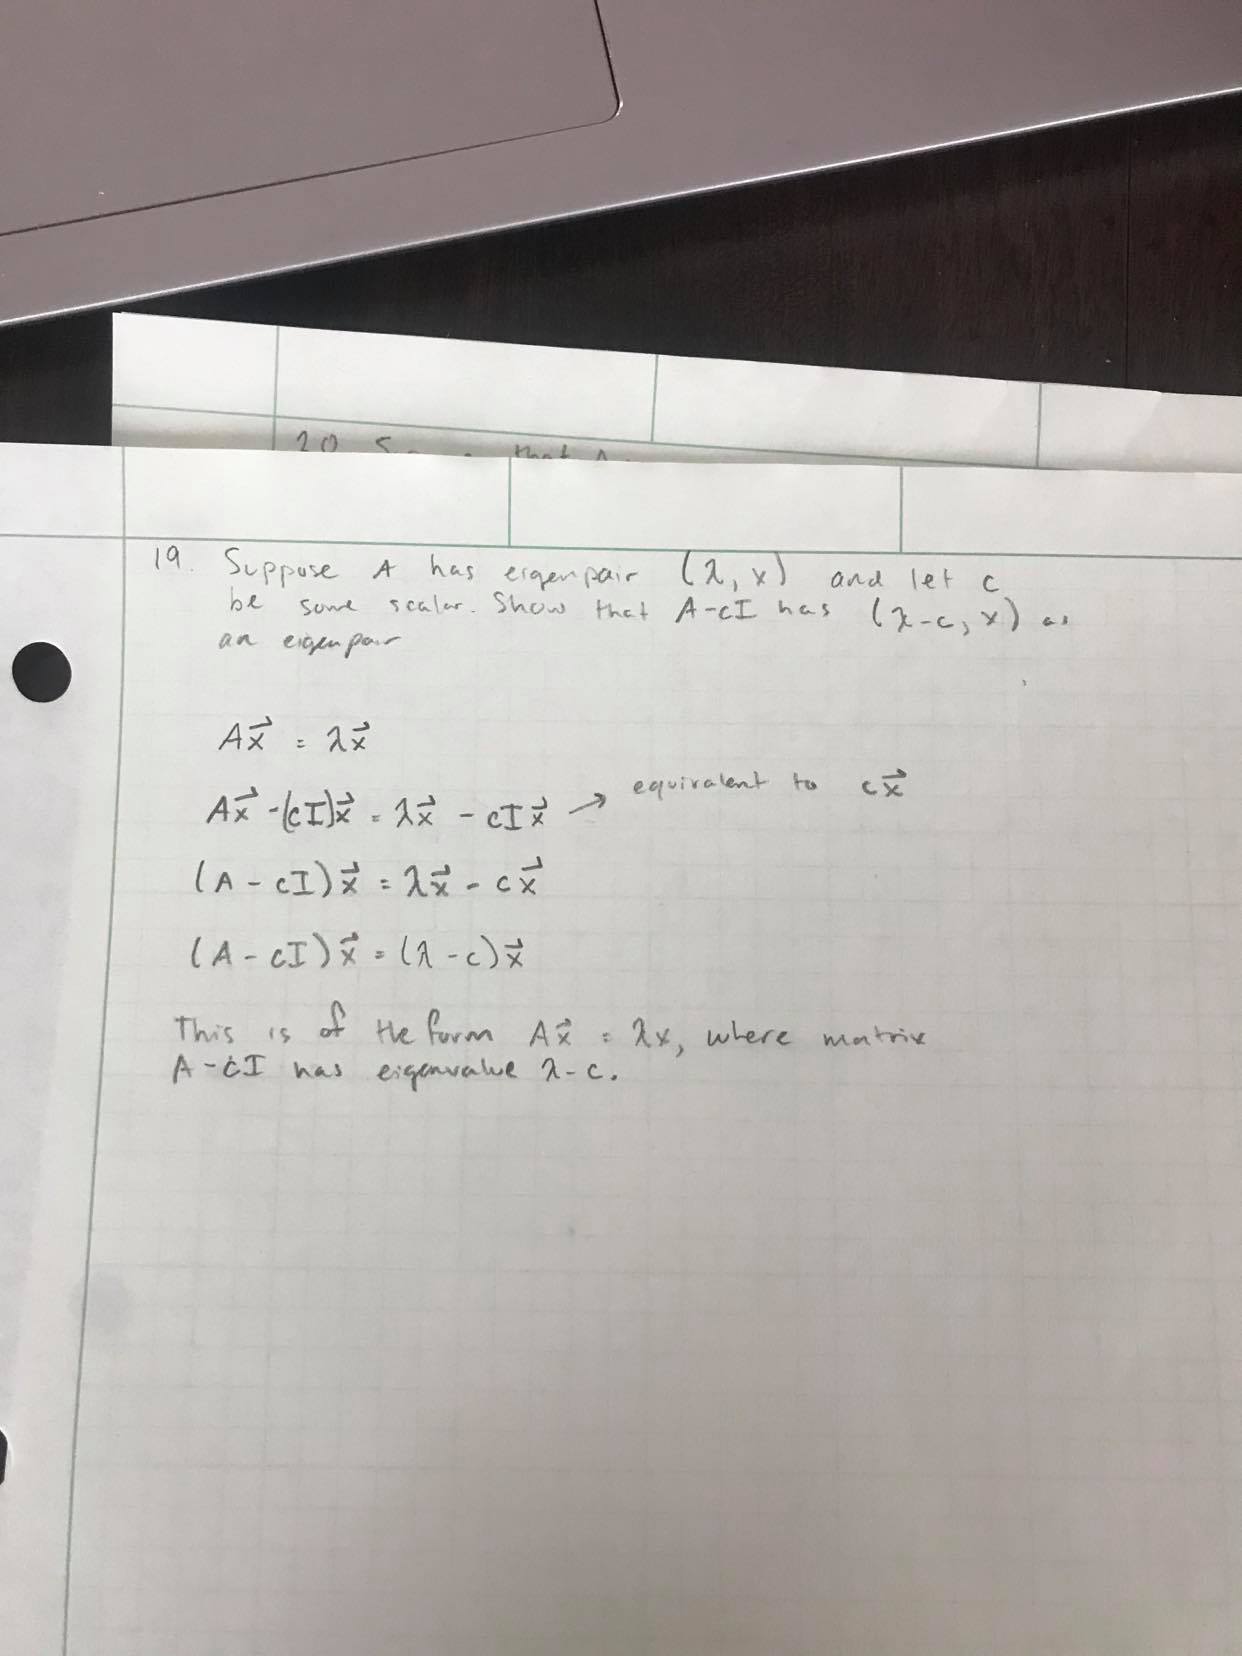 20. that
19. Suppose A has eigenpair (λ, x) and let c
be some scalar. Show that A-cI has (λ-c, x) as
an eigenpair
Ax⃗ = λx⃗
Ax⃗ -(cI)x⃗ = λx⃗ - cIx⃗ → equivalent to cx⃗
(A - cI)x⃗ = λx⃗ - cx⃗
(A - cI)x⃗ = (λ - c)x⃗
This is of the form Ax⃗ = λx, where matrix
A-cI has eigenvalue λ-c.